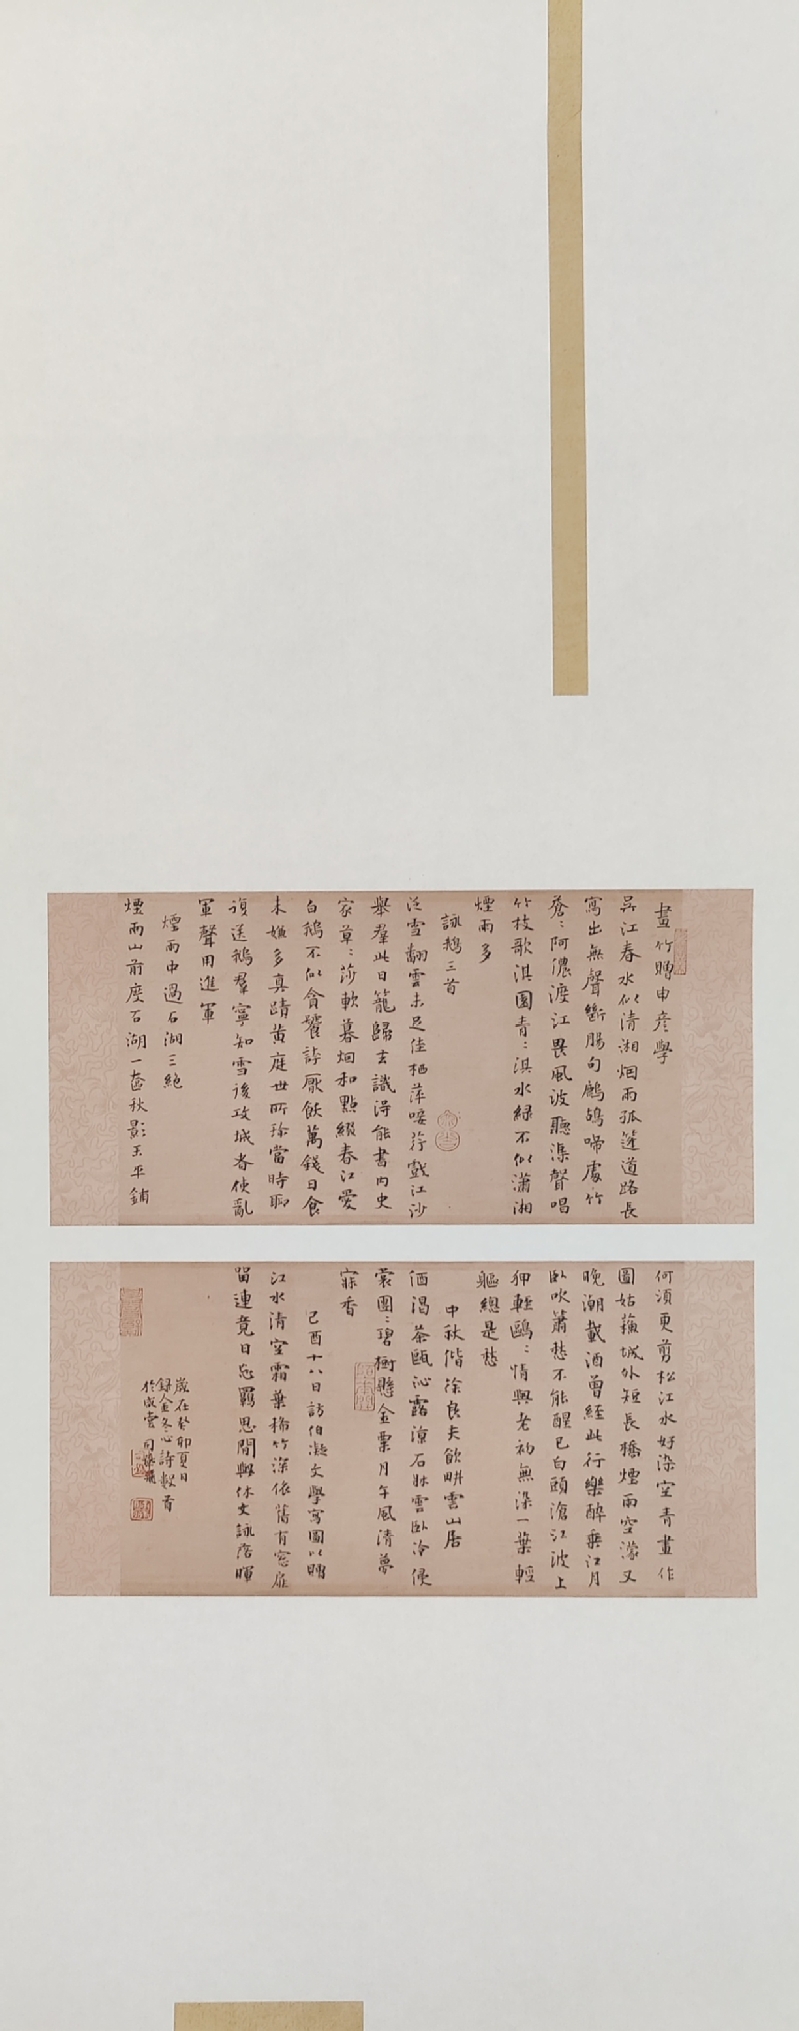 畫竹贈申彦學
吳江春水似清湘烟雨孤篷道路長
寫出無聲斷腸句鷓鴣啼處竹
蒼〻阿儂渡江畏風波聽渠聲唱
竹枝歌淇園青〻淇水緑不似瀟湘
煙雨多
詠鵝三首
泛雪翻雲未足佳栖萍唼荇戲江沙
舉羣此日籠歸去識得能書内史
家草〻莎軟暮烟和點綴春江愛
白鵝不似貪饕誇厭飫萬錢日食
未嫌多真蹟黄庭世所珍當時聊
復送鵝羣寧知雪後攻城者使亂
軍聲用進軍
煙雨中過石湖三絶
煙雨山前度石湖一奩秋影玉平鋪
何須更剪松江水好染空青畫作
圖姑蘓城外短長橋煙雨空濛又
晚潮載酒曾經此行樂醉乗江月
卧吹簫愁不能醒已白頭滄江波上
狎輕鷗〻情與老初無染一葉輕
軀總是愁
中秋偕徐良夫飲畊雲山居
酒渴茶甌沁露涼石牀雲卧冷侵
裳團〻碧樹懸金粟月午風清夢
寐香
己酉十八日訪伯凝文學寫圖以贈
江水清空霜葉稀竹深依舊有窓扉
留連竟日忘羈思閒與休文詠落暉
歳在癸卯夏日
録金冬心詩數首
於成雲